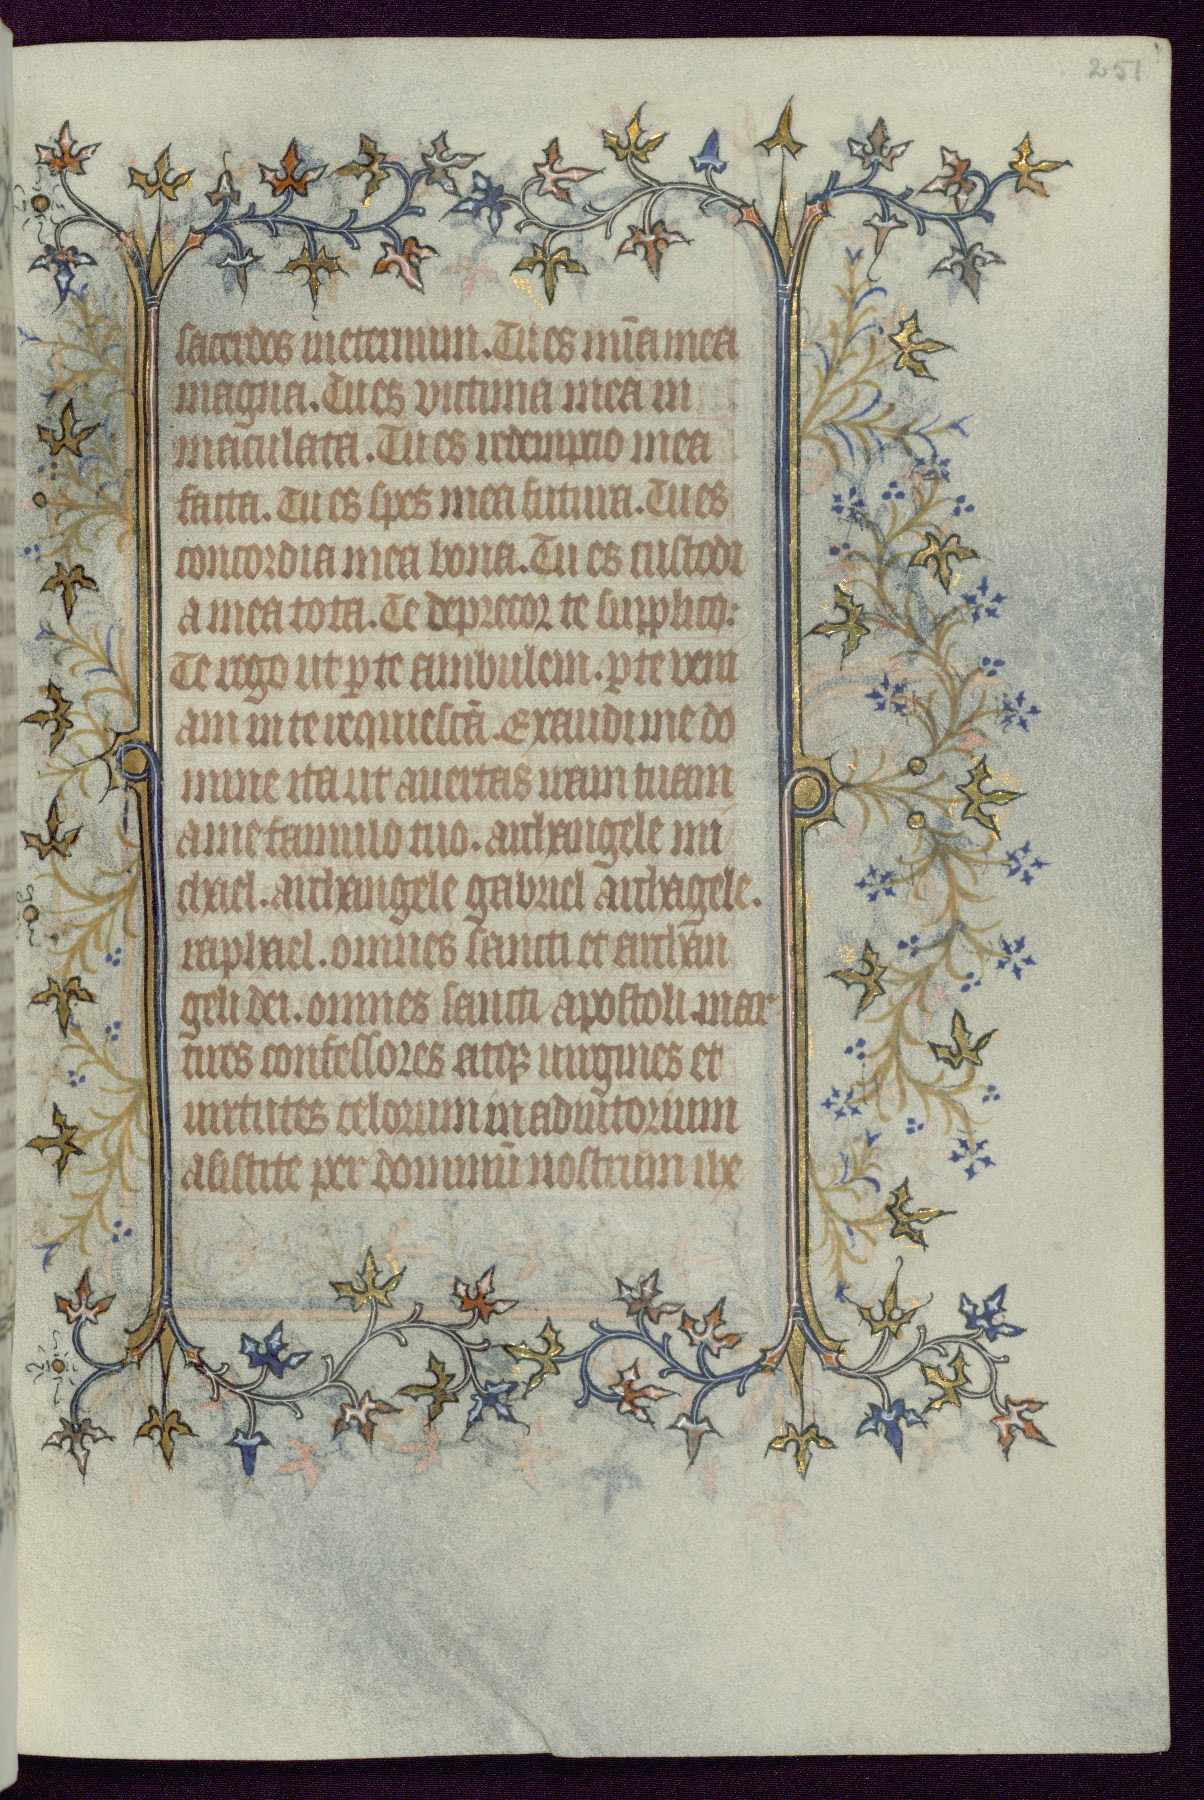 251
sacerdos ineternum. Tu es mīa mea
magna. Tu es victima mea in
maculata. Tu es redempcio mea
facta. Tu es spes mea futura. Tu es
concordia mea bona. Tu es custodi
a mea tota. Te deprecor te supplico:
Te rogo ut ꝑ te ambulem. ꝑ te veni
am in te requiescā. Exaudi me do
mine ita ut auertas iram tuam
a me famulo tuo. archangele mi
chael. archangele gabriel archāgele.
raphael. omnes sancti et archan
geli dei. omnes sancti apostoli mar
tires confessores atqꝫ uirgines et
uirtutes celorum in adiutorium
assistite per dominū nostrum ihe